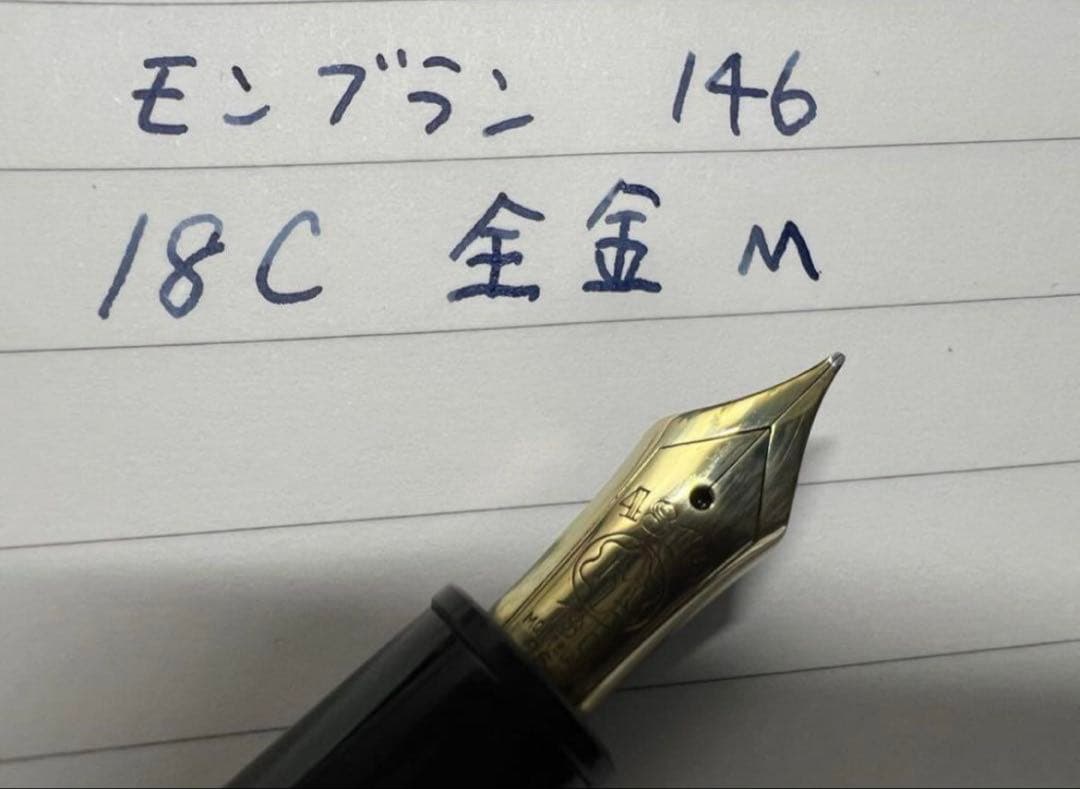 モンブラン 146
18C 全金 M